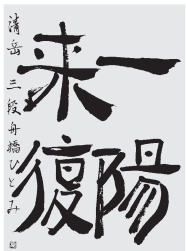 一陽
来復
清岳 三段舟橋ひとみ